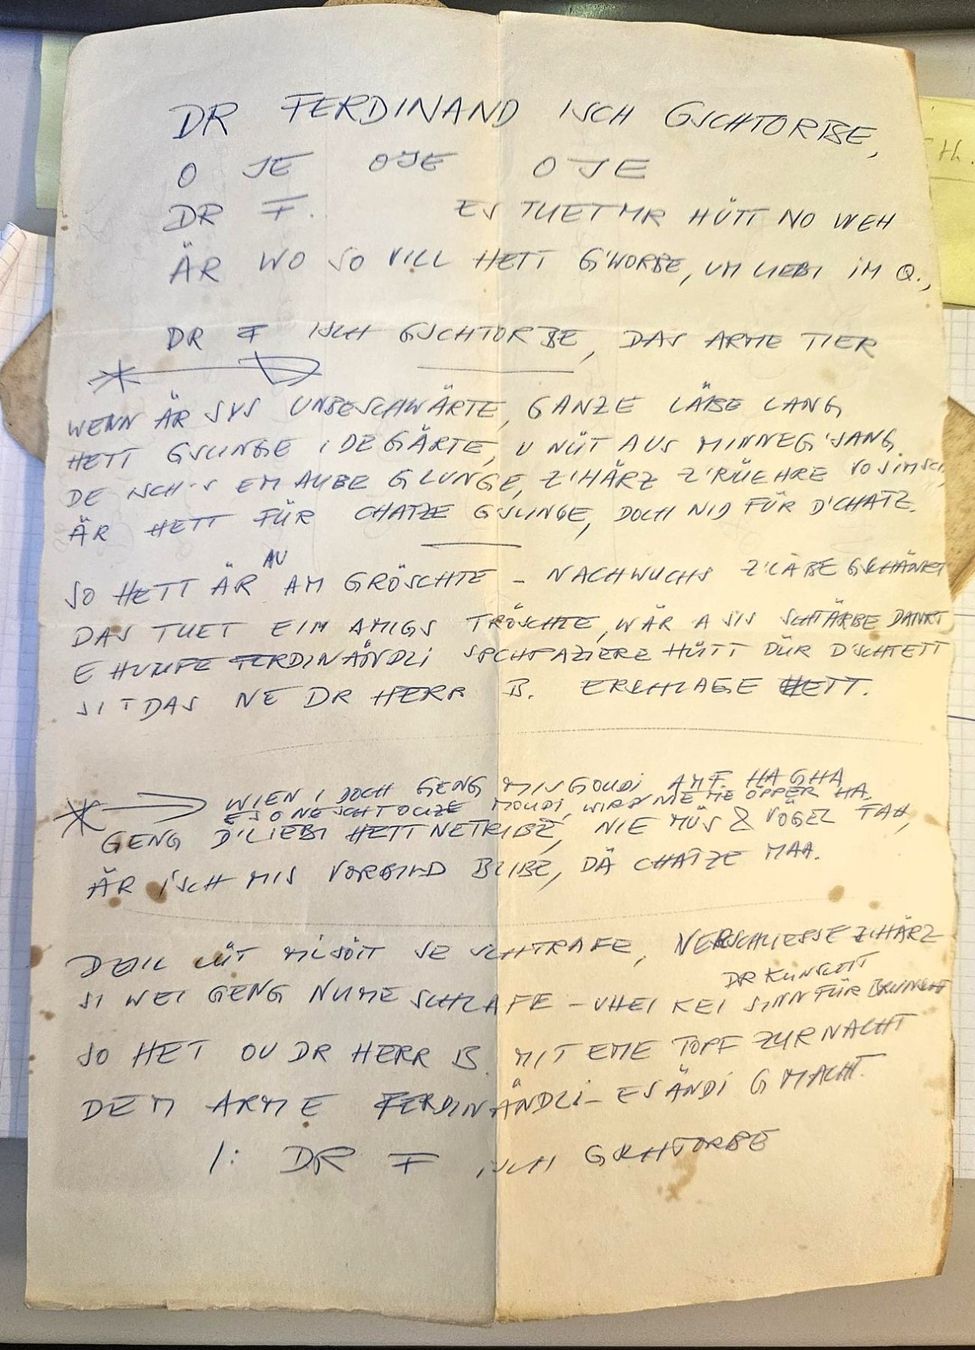 DR FERDINAND ISCH GSCHTORBE,
O JE OJE OJE
DR F. ES TUET MR HÜTT NO WEH
ÄR WO SO VILL HETT G'WORBE, UM LIEBI IM Q.,
DR F ISCH GSCHTORBE, DAS ARME TIER
WENN ÄR SYS UNBESCHWÄRTE, GANZE LÄBE LANG
HETT GSUNGE I DE GÄRTE, U NÜT AUS MINNEG'SANG.
DE ISCH'S EM AUBE GLUNGE, Z'HÄRZ Z'RÜEHRE VO SIM
ÄR HETT FÜR CHATZE GSUNGE, DOCH NID FÜR D'CHATZ.
AU
SO HETT ÄR AM GRÖSCHTE - NACHWUCHS Z'LÄBE GSCHÄNKT
DAS TUET EIM AMIGS TRÖSCHTE, WÄR A SIS SCHTÄRBE DÄNKT
E HUUFE FERDINÄNDLI SPAZIERE HÜTT DÜR D'SCHTETT
SIT DAS NE DR HERR B. ERSCHLAGE HETT.
WIEN I DOCH GENG MIS GOUDI AM F. HA GHA
E SO NE SCHTOUZE MOUDI, WIRD ME NIE ÖPPER HA.
GENG D'LIEBI HETT NE TRIBE, NIE MÜS & VÖGEL FAH,
ÄR ISCH MIS VORBILD BLIBE, DÄ CHATZE MAA.
DEIL LÜT MISÖIT SE SCHTRAFE, VERSCHLIESSE Z'HÄRZ
DR KUNSCHT
SI WEI GENG NUME SCHLAFE - U HEI KEI SINN FÜR
SO HET OU DR HERR B. MIT EME TOPF ZUR NACHT
DEM ARME FERDINÄNDLI - ES ÄNDI GMACHT.
/: DR F ISCH GSCHTORBE